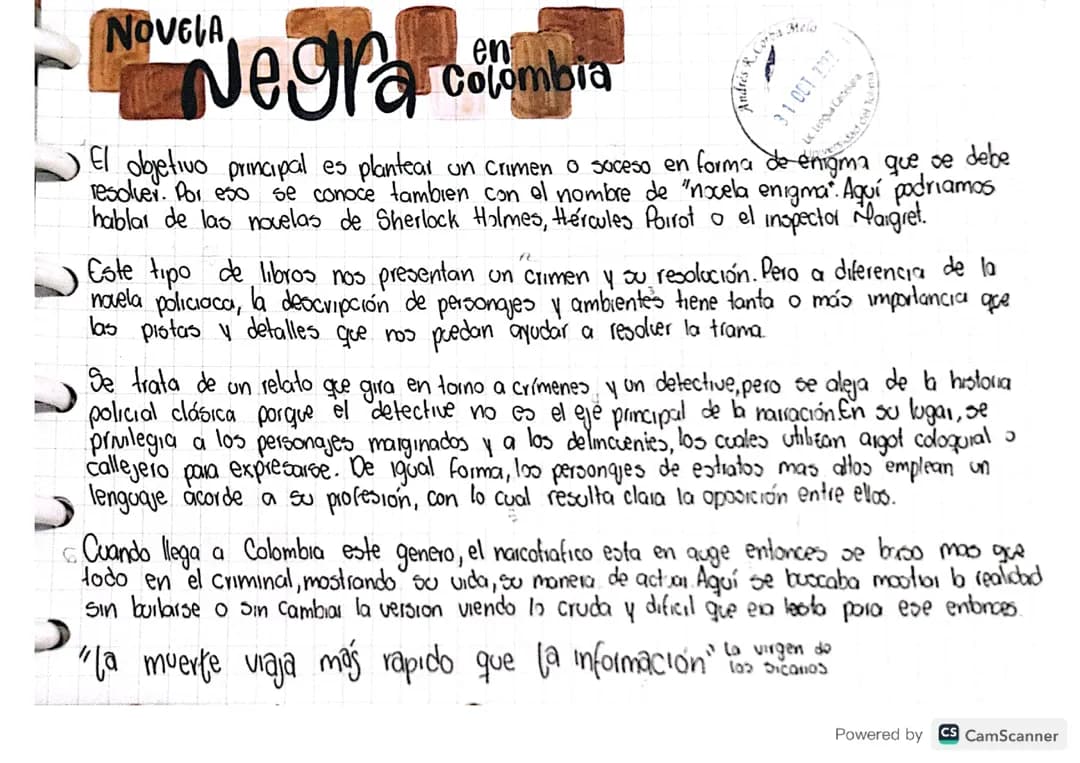 NOVELA
Negra en
Colombia
Andrés R. Corba Melo
31 OCT 202
El objetivo principal es plantear un crimen o suceso en forma de enigma que se debe
resolver. Por eso se conoce tambien con el nombre de "novela enigma". Aquí podriamos
hablar de las novelas de Sherlock Holmes, Hércules Poirot o el inspector Maigret.
Este tipo de libros nos presentan un crimen y su resolución. Pero a diferencia de la
novela policiaca, la descripción de personajes y ambientes tiene tanta o más importancia que
las pistas y detalles que nos puedan ayudar a resolver la trama
Se trata de un relato que gira en torno a crímenes y un detective, pero se aleja de la historia
policial clásica porque el detective no es el eje principal de la narración. En su lugar, se
privilegia a los personajes marginados y a los delincuentes, los cuales utilizan argot coloquial o
callejero para expresarse. De igual forma, los personajes de estratos mas altos emplean un
lenguaje acorde a su profesión, con lo cual resulta clara la oposición entre ellos.
Cuando llega a Colombia este genero, el narcotrafico esta en auge entonces se baso mas que
todo en el criminal, mostrando su vida, su manera de actuar. Aquí se buscaba mostrar la realidad
sin burlarse o sin cambiar la version viendo lo cruda y dificil que era para ese entonces
"la muerte viaja más rapido que la información" la virgen de
los sicarios
Powered by CS CamScanner